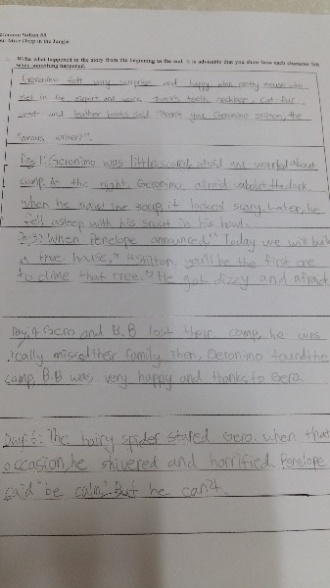 Geronimo Stilton A8
Mice Deep in the Jungle
Write what happened in the story from the beginning to the end. It is advisable that you show how each character felt
when something happened.
Geronimo felt very surprise and happy when pretty mouse who
set in the airport and wore teeth necklace, cat fur
and leather boots said "You're Geronimo Stilton, the
famous writer?".
Day 1: Geronimo was little scared and worried about
camp. At the night, Geronimo afraid about the dark.
when he saw the soup, it looked scary. Later, he
fell asteep with his snout in his bowl.
Day 3: When Penelope announced "Today we will buil
a true house," "Stilton, you'll be the first one
to clime that tree." He got dizzy and afraid.
Day 4 Gero and B.B lost their camp, he was
really missed their family. Then, Geronimo found the
camp. B.B was very happy and thanks to Gero.
Day 6: The hairy spider stared Gero. when that
occasion, he shivered and horrified. Penelope
said "be calm." But he can't.